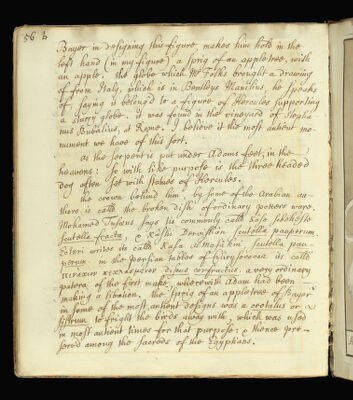 56 b
Bayer in designing this figure, makes him hold in the
left hand (in my figure) a sprig of an appletree, with
an apple. the globe which Mr Folks brought a drawing
of from Italy, which is in Bentleys Manilius, he speaks
of, saying it belong'd to a figure of Hercules supporting
a starry globe. it was found in the vineyard of Stepha
nus Bubalius, at Rome. I believe it the most antient mo-
nument we have of this sort.
as the serpent is put under Adams feet, in the
heavens: so with like purpose is the three headed
dog often set with statues of Hercules.
the crown behind him, by some of the Arabian as-
there is calld the broken dish of ordinary potters ware.
Mohamed Tusaus says tis commonly calld Kasa
scutella fracta, & Kashi Dervishan scutella pauperum
writes its calld Kasa Almasakin scutella pau-
perum. in the persian tables of Chrysococca its calld
discus confractus. a very ordinary
patera of the first make, wherewith Adam had been
making a libation. the sprig of an appletree of Bayer
in some of the most antient designs was a crotalus or
sistrum to fright the birds away with, which was used
in most antient times for that purpose: & thence pre-
served among the sacreds of the Egyptians.